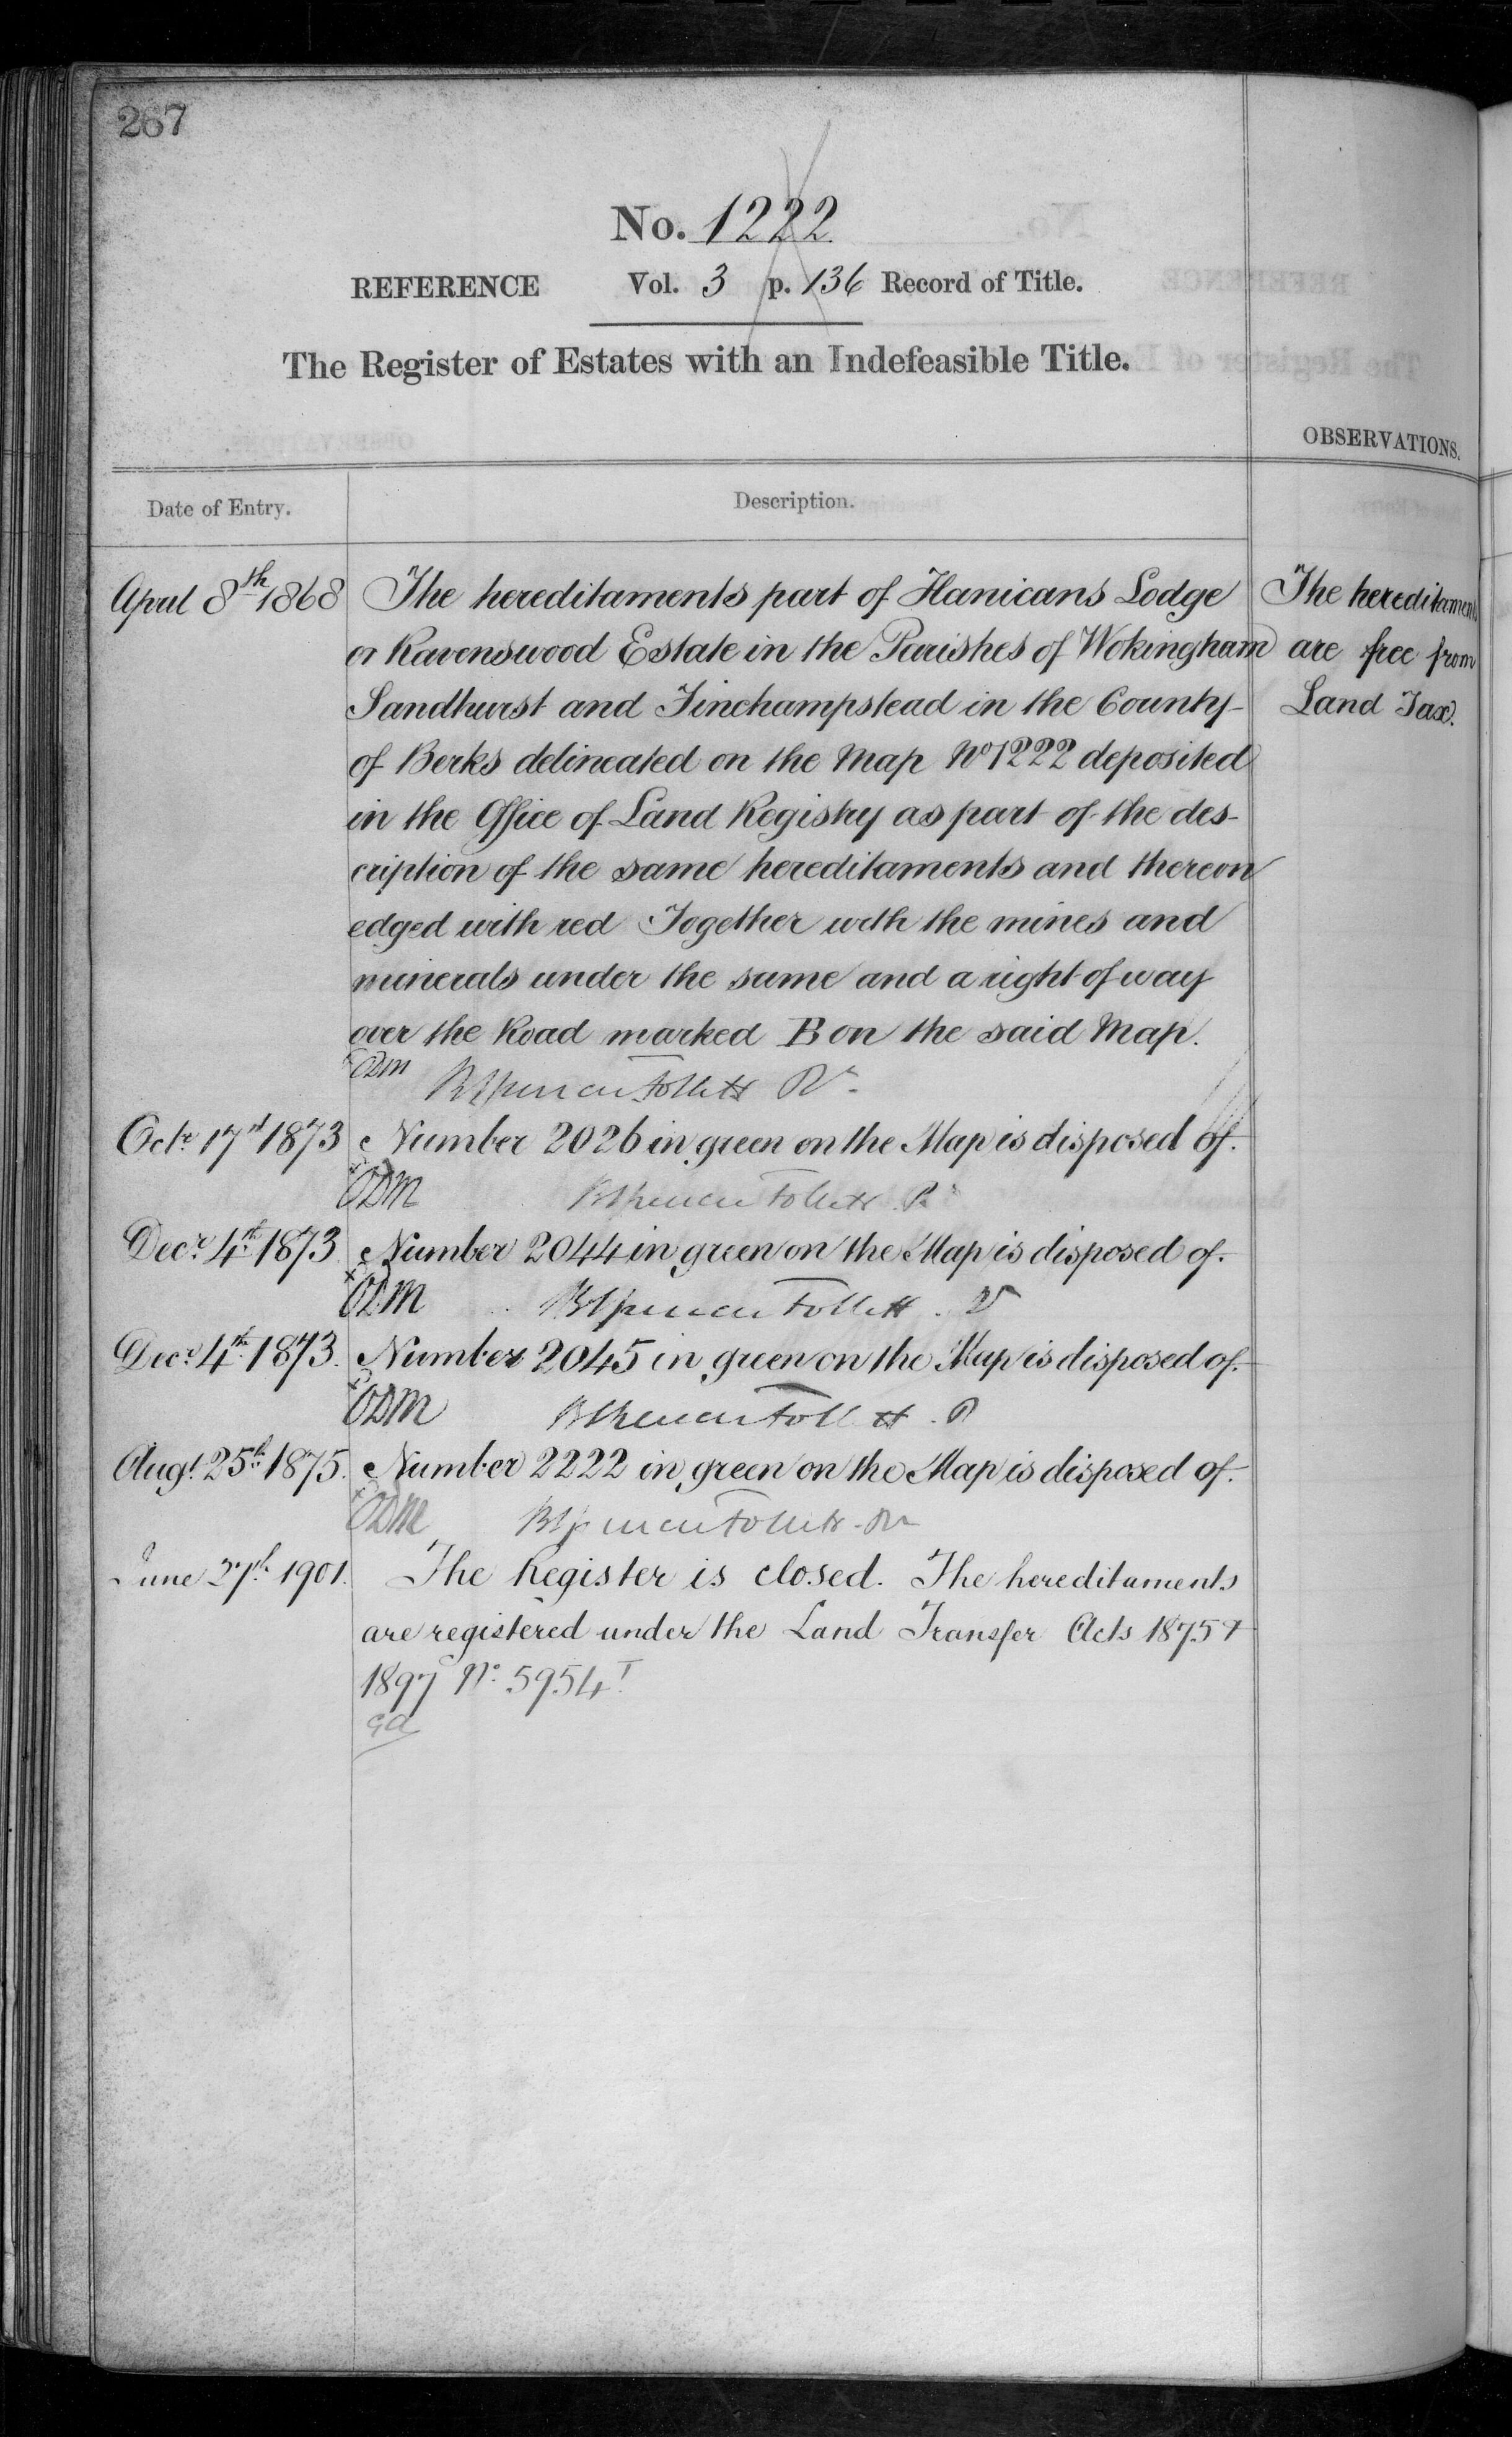 267
No. 1222
REFERENCE Vol. 3 p. 136 Record of Title.
The Register of Estates with an Indefeasible Title.
OBSERVATIONS.
Date of Entry. Description.
April 8th 1868 The hereditaments part of Hanicans Lodge The hereditaments
or Ravenswood Estate in the Parishes of Wokingham are free from
Sandhurst and Finchampstead in the County Land Tax.
of Berks delineated on the Map No 1222 deposited
in the Office of Land Registry as part of the des-
cription of the same hereditaments and thereon
edged with red Together with the mines and
minerals under the same and a right of way
over the Road marked B on the said Map.
ODM BSpencer Follett Rr
Octr. 17th 1873 Number 2026 in green on the Map is disposed of.
ODM BSpencer Follett R
Decr. 4th 1873 Number 2044 in green on the Map is disposed of.
ODM BSpencer Follett. R
Decr. 4th 1873. Number 2045 in green on the Map is disposed of.
ODM BSpencer Follett. R
Augt. 25th 1875. Number 2222 in green on the Map is disposed of.
ODM BSpencer Follett. Rr
June 27th 1901. The Register is closed. The hereditaments
are registered under the Land Transfer Acts 1875 &
1897 No. 5954 T.